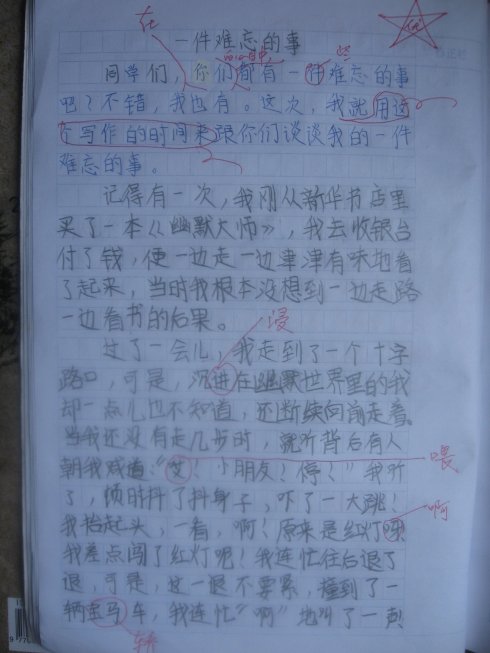 一件难忘的事
同学们，你们都有一件难忘的事
吧？不错，我也有。这次，我就用这
个写作的时间来跟你们谈谈我的一件
难忘的事。
记得有一次，我刚从新华书店里
买了一本《幽默大师》，我去收银台
付了钱，便一边走一边津津有味地看
了起来，当时我根本没想到一边走路
一边看书的后果。
浸
过了一会儿，我走到了一个十字
路口，可是，沉进在幽默世界里的我
却一点儿也不知道，还断续向前走着。
当我还没有走几步时，就听背后有人
喂
朝我喊道：“艾！小朋友！停！”我听
了，顿时抖了抖身子，吓了一大跳！
啊
我抬起头，一看，啊！原来是红灯呀！
我差点闯了红灯呢！我连忙往后退了
退，可是，这一退不要紧，撞到了一
辆宝马车，我连忙“啊”地叫了一声！
轿